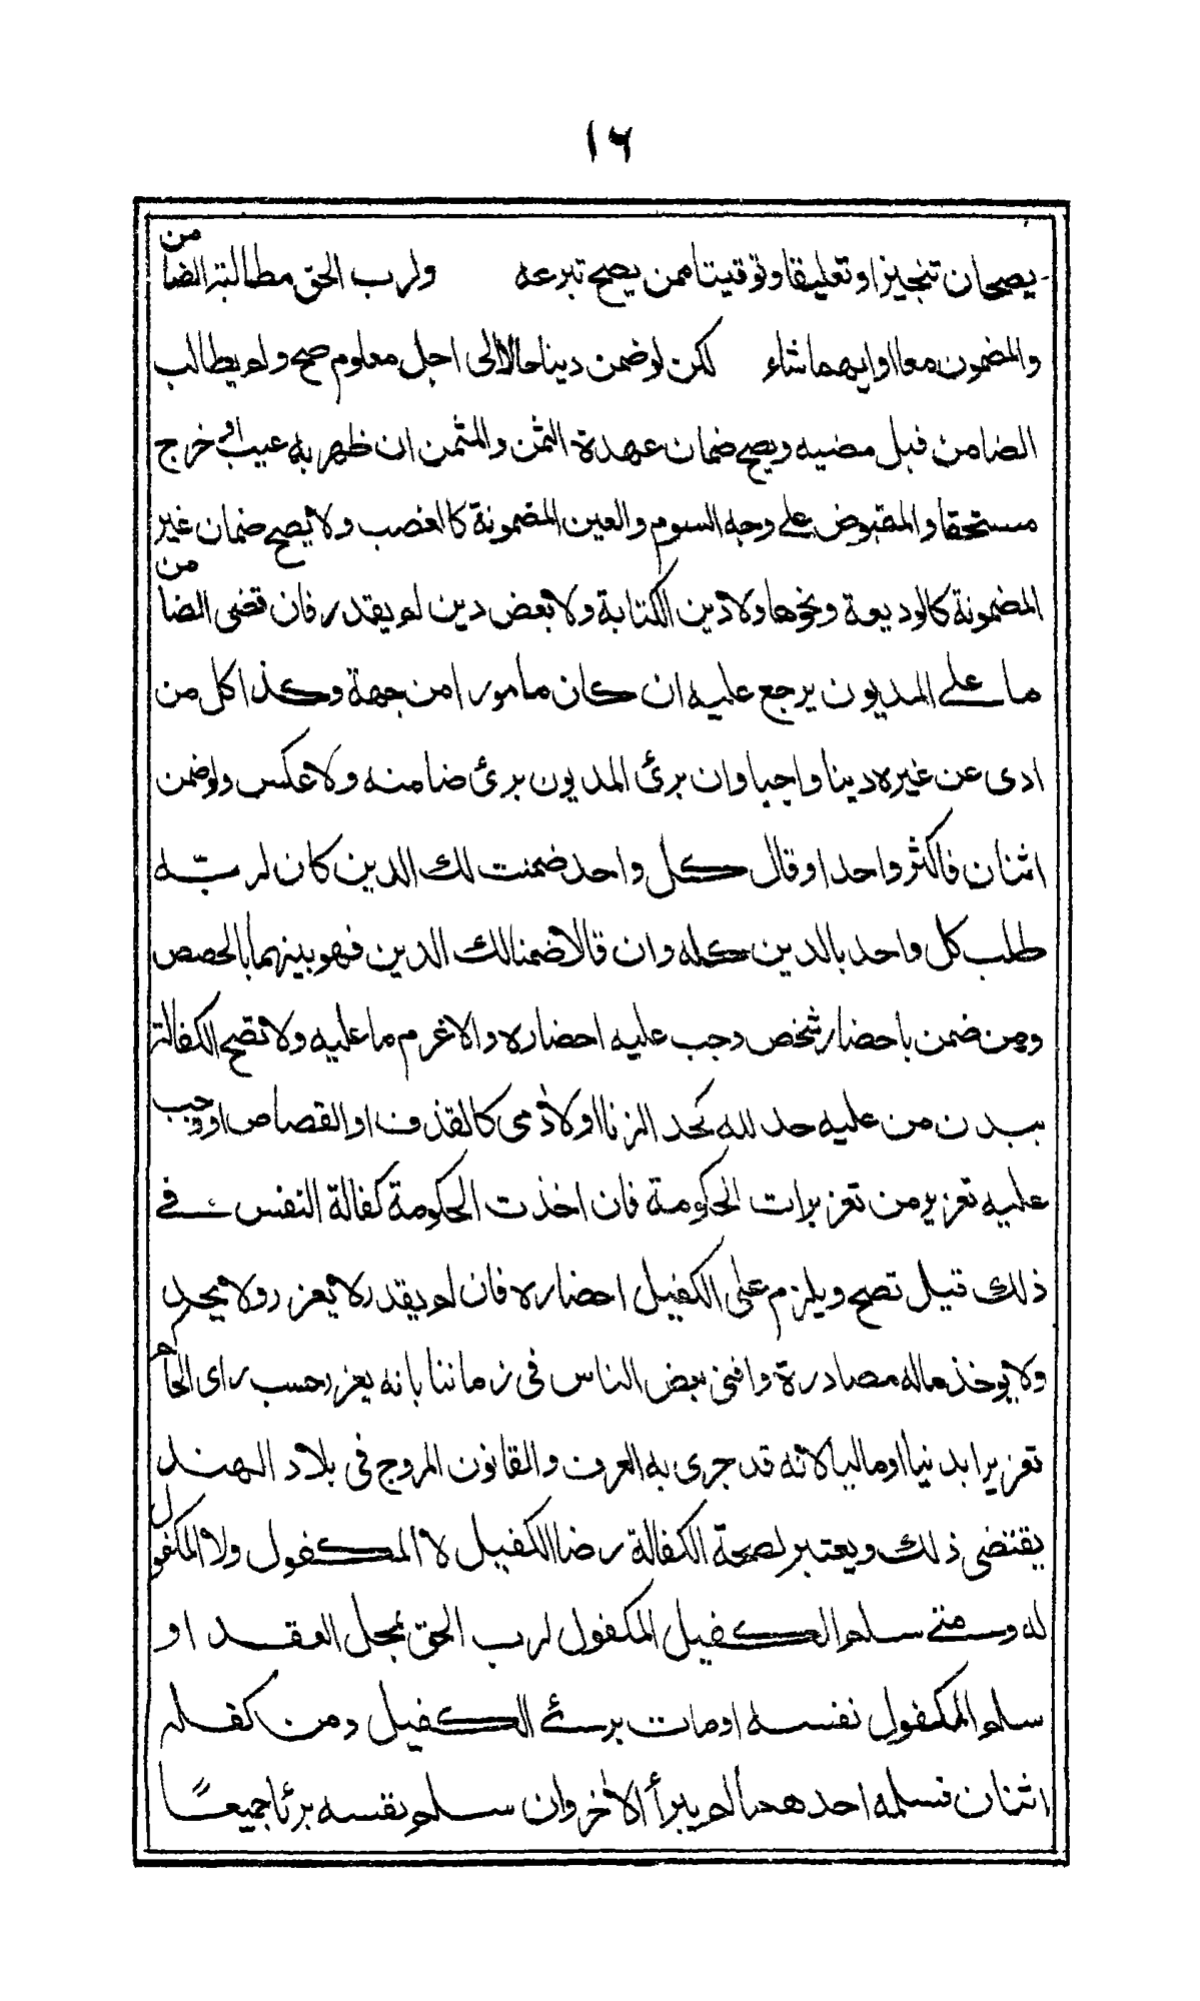 ١٦
يصحان تنجيزا وتعليقا وتوقيتا ممن يصح تبرعه ولرب الحق مطالبة الضامن
والمضمون معا او ايهما شاء لكن لو ضمن دينا حالا الى اجل معلوم صح ولم يطالب
الضامن قبل مضيه ويصح ضمان عهدة الثمن والمثمن ان ظهر به عيب او خرج
مستحقا والمقبوض على وجه السوم والعين المضمونة كالغصب ولا يصح ضمان غير
المضمونة كالوديعة ونحوها ولا دين الكتابة ولا بعض دين لم يقدر فان قضى الضامن
ما على المديون يرجع عليه ان كان مامورا من جهة وكذا كل من
ادى عن غيره دينا واجبا وان برئ المديون برئ ضامنه ولا عكس ولو ضمن
اثنان فاكثر واحدا وقال كل واحد ضمنت لك الدين كان لربّه
طلب كل واحد بالدين كله وان قالا ضمنا لك الدين فهو بينهما بالحصص
ومن ضمن باحضار شخص وجب عليه احضاره والا غرم ما عليه ولا تصح الكفالة
ببدن من عليه حد لله كحد الزنا او لآدمى كالقذف او القصاص او وجب
عليه تعزير من تعزيرات الحكومة فان اخذت الحكومة كفالة النفس فے
ذلك قيل تصح ويلزم على الكفيل احضاره فان لم يقدر لا يعزر ولا يجرم
ولا يوخذ ماله مصادرة وافتى بعض الناس فى زماننا بانه يعزر حسب راى الحاكم
تعزيرا بدنيا او ماليا لانه قد جرى به العرف والقانون المروج فى بلاد الهند
يقتضى ذلك ويعتبر لصحة الكفالة رضا الكفيل لا المكفول ولا المكفول
له ومتے سلم الكفيل المكفول لرب الحق بمحل العقد او
سلم المكفول نفسه او مات برئ الكفيل ومن كفله
اثنان فسلمه احدهما لم يبرأ الآخر وان سلم نفسه برئا جميعًا